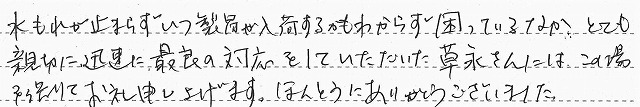 水もれが止まらずいつ製品が入荷するかもわからず困っているなか、とても
親切に迅速に最良の対応をしていただいた草永さんには、この場
を借りてお礼申し上げます。ほんとうにありがとうございました。